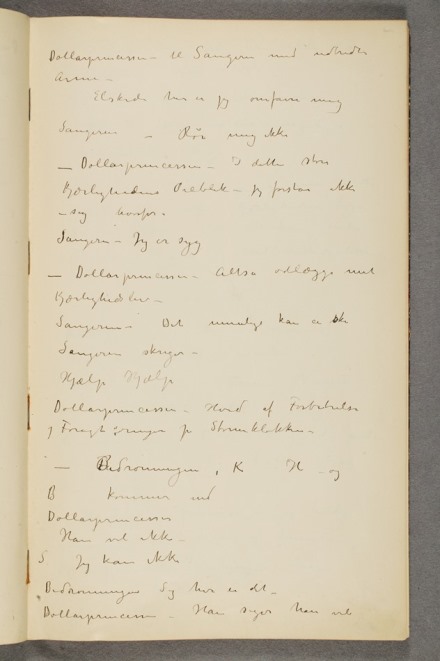 Dollarprincessen – til Sangeren med udbredte
Arme –
Elskede her er jeg omfavn mig
Sangeren – Rør mig ikke
– Dollarprincessen – I dette store
Kjærlighedens Øieblik – jeg forstaa ikke
– sig hvorfor –
Sangeren – Jeg er syg
– Dollarprincessen – Altsa ødelægge mit
Kjærlighedsliv –
Sangeren – Det umulige kan er ikke
Sangeren skriger –
Hjælp Hjælp
Dollarprincessen – Hvid af Forbitrelse
og Foragt springer på Stormklokken –
– Bedronningen, K H og
B kommer ind
Dollarprincessen
Han vil ikke –
S Jeg kan ikke
Bedronningen Sig hvor er det –
Dollarprincessen – Han siger han vil